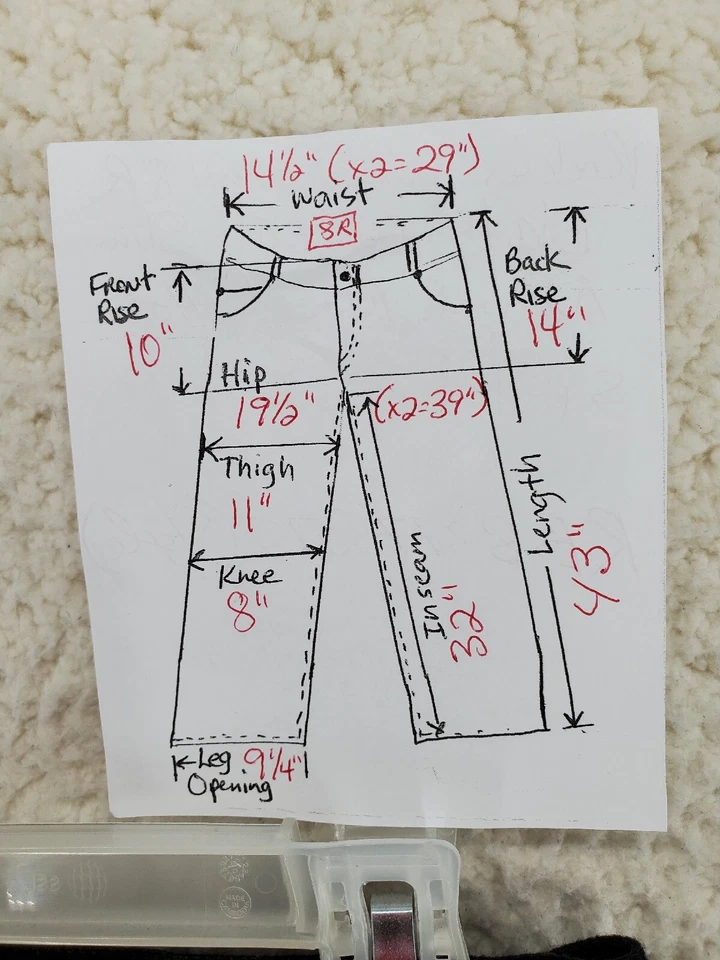 14½" (x2=29")
waist
8R
Front
Rise
10"
Back
Rise
14"
Hip
19½" (x2=39")
Thigh
11"
Knee
8"
Inseam
32"
Length
43"
Leg
Opening
9¼"